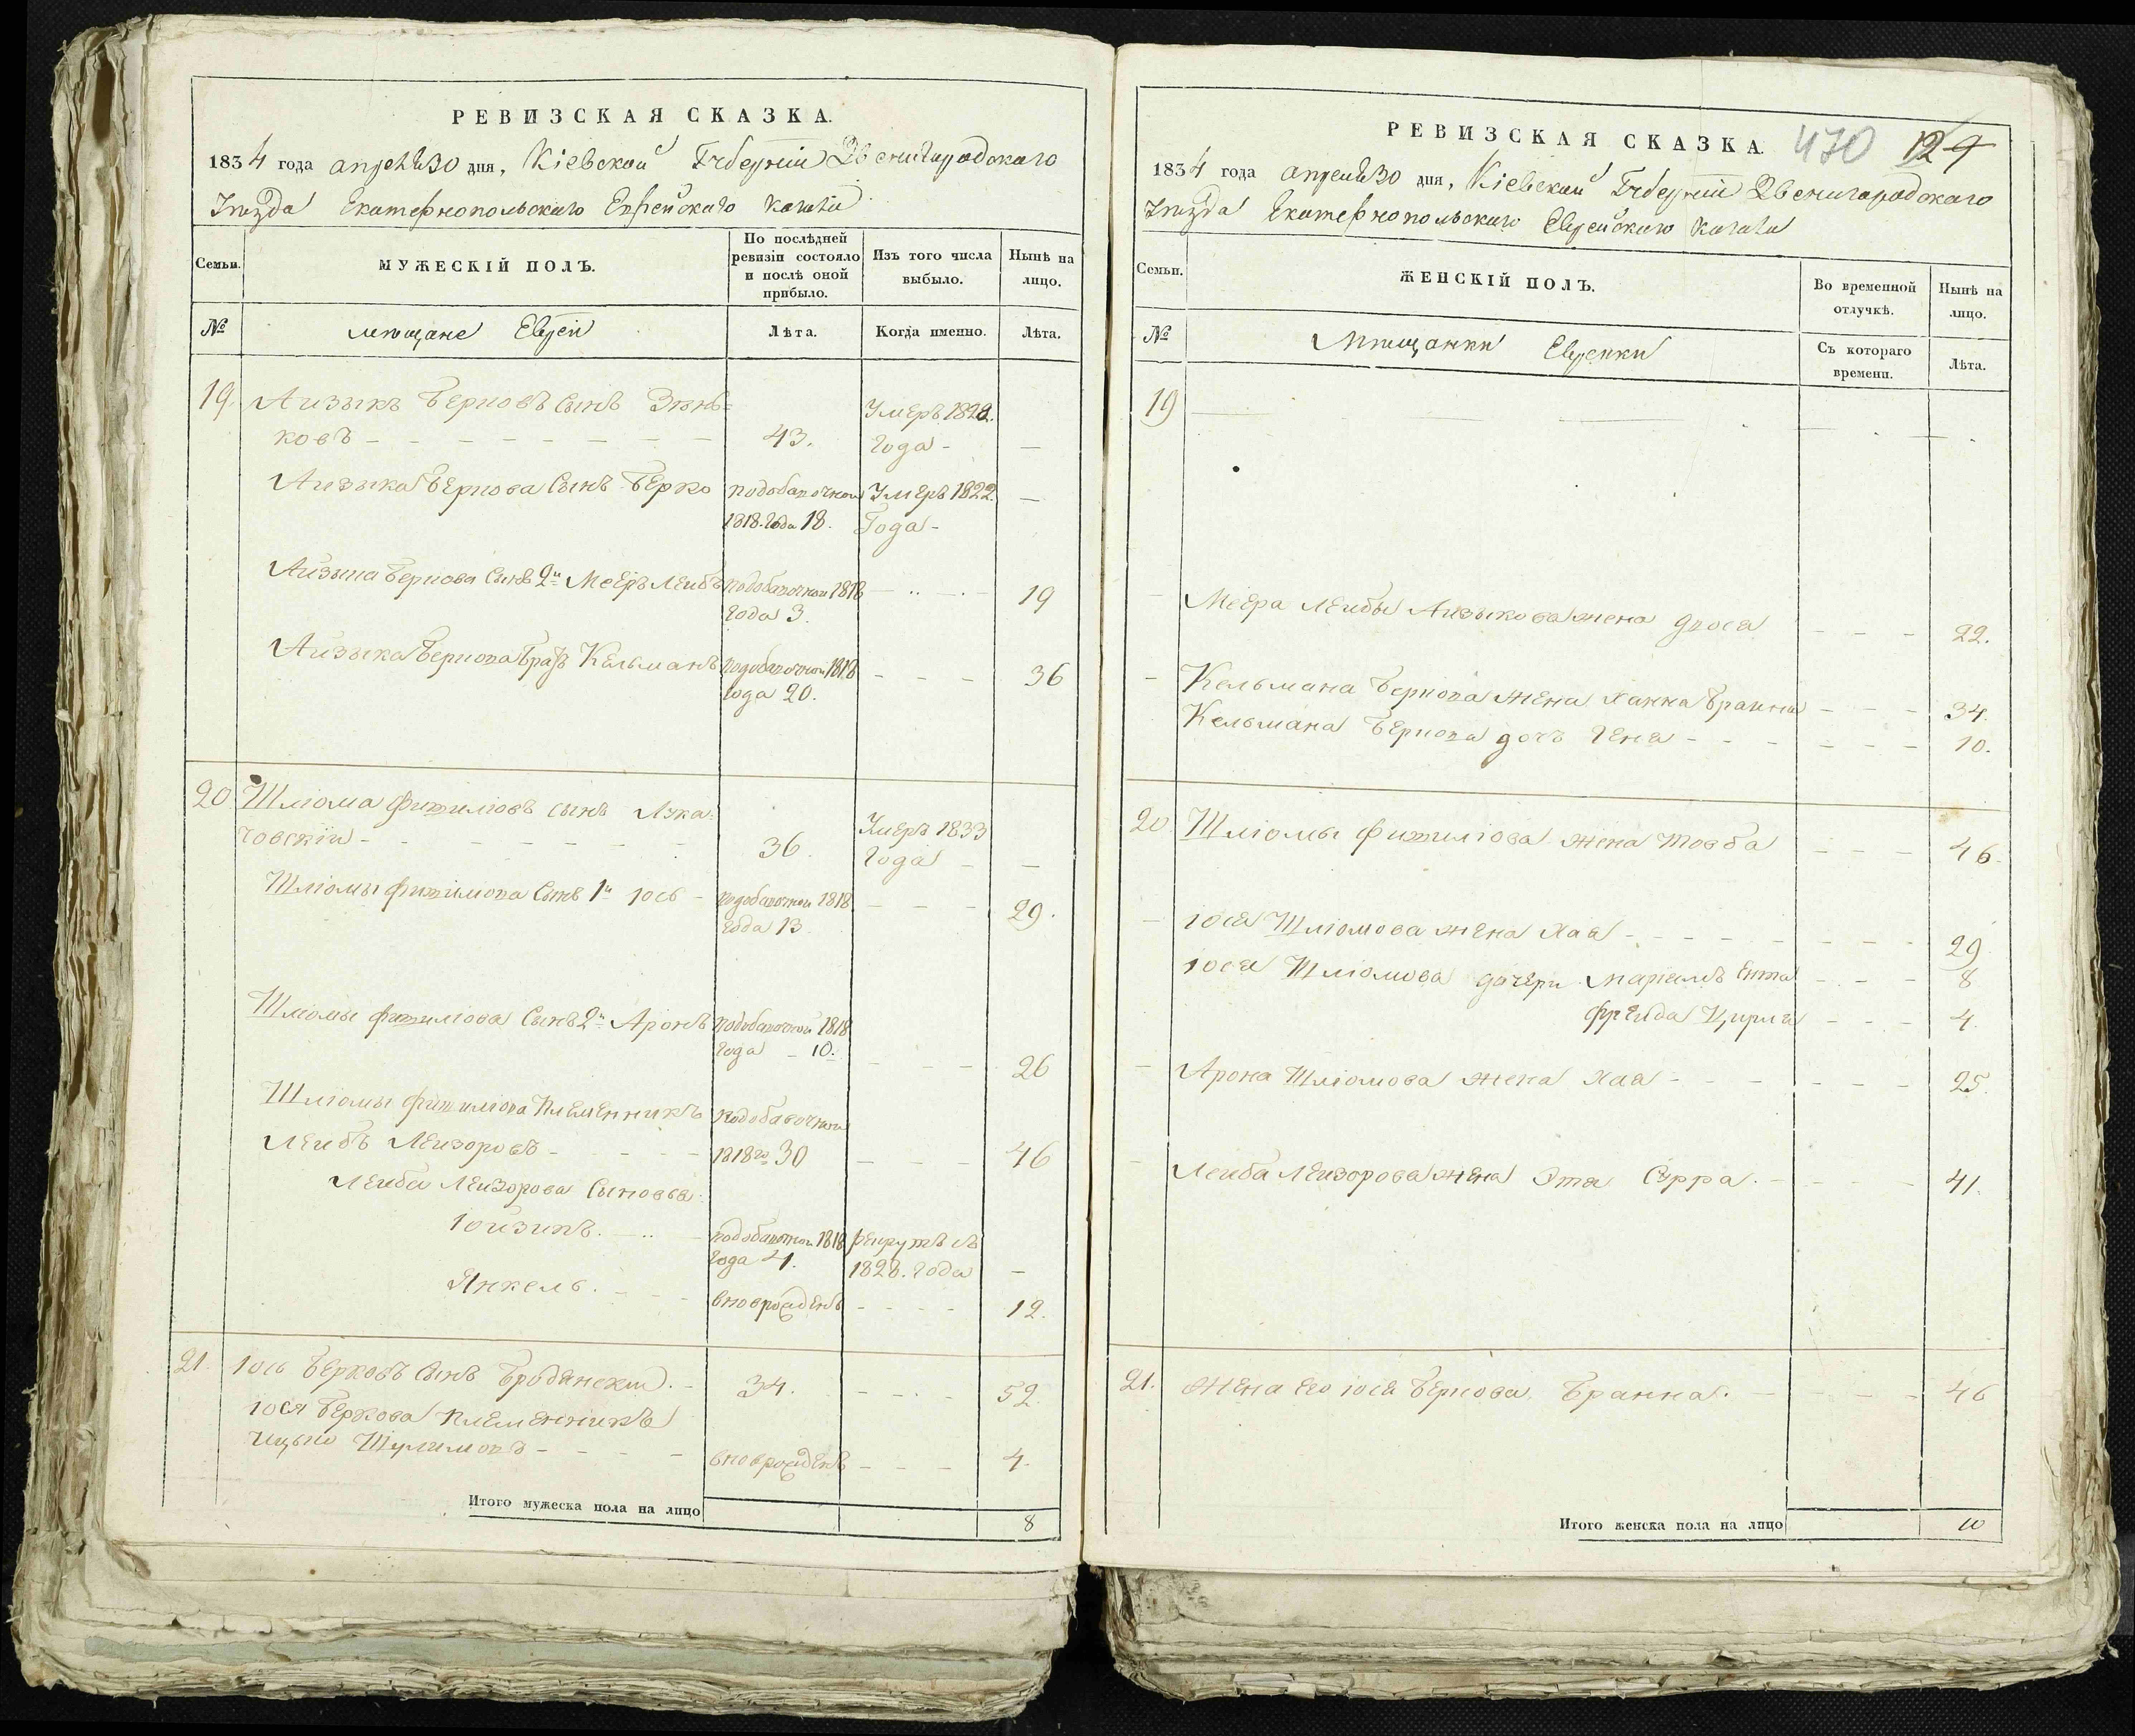 РЕВИЗСКАЯ СКАЗКА.
1834 года апреля 30 дня, Кіевской Губерніи Звенигородскаго
Уезда Екатеринопольскаго Еврейскаго кагала
Семьи.
МУЖЕСКІЙ ПОЛЪ.
По послѣдней ревизіи состояло и послѣ оной прибыло.
Изъ того числа выбыло.
Нынѣ на лицо.
№
мещане Евреи
Лѣта.
Когда именно.
Лѣта.
19. Аизыкъ Берковъ сынъ Зинь=
ковъ - 43. Умеръ 182 года - —
Аизыка Беркова Сынъ Берко подобавочной Умеръ 1822 —
1818 года 18. Года -
Аизыка Беркова Сынъ 2й Мееръ Леибъ подобавочной 1818 19
года 3.
Аизыка Беркова Братъ Кельманъ подобавочной 1818 36
года 20.
20 Шліома Фишиліовъ сынъ Лука=
човскіи - 36. Умеръ 1833 Года - —
Шліомы Фишиліова Сынъ 1й Іось - подобавочной 1818 29.
года 13
Шліомы Фишиліова Сынъ 2й Аронъ подобавочной 1818
года - 10. 26
Шліомы Фишиліова Племенникъ подобавочной
Леибъ Леизоровъ - 1818го 30 46
Леиба Леизорова Сыновья:
подобавочной 1818 рекрутъ съ
года 4. 1828. года —
Янкель. вноврожденъ 12.
21. Іось Берковъ Сынъ Бродянскіи. - 34. 52.
Іося Беркова племенникъ
Ицько - вноврожденъ 4.
Итого мужеска пола на лицо 8
РЕВИЗСКАЯ СКАЗКА
470 124
1834 года апреля 30 дня, Кіевской Губерніи Звенигородскаго
Уезда Екатеринопольскаго Еврейскаго кагала
Семьи.
ЖЕНСКІЙ ПОЛЪ.
Во временной отлучкѣ.
Нынѣ на лицо.
№
Мещанки Еврейки
Съ котораго времени.
Лѣта.
19
Меера Леибы Аизыкова жена Двося 22.
Кельмана Беркова жена Ханна Браина 34.
Кельмана Беркова дочь Геня - 10.
20. Шліомы Фишиліова жена Товба 46.
Іося Шліомова жена Хая - 29
Іося Шліомова дочери Маріамъ Ента 8
Фреида Цирля 4.
Арона Шліомова жена Хая - 25.
Леиба Леизорова жена Эта Сурра. 41.
21. Жена его Іося Беркова Бранна. 46
Итого женска пола на лицо 10